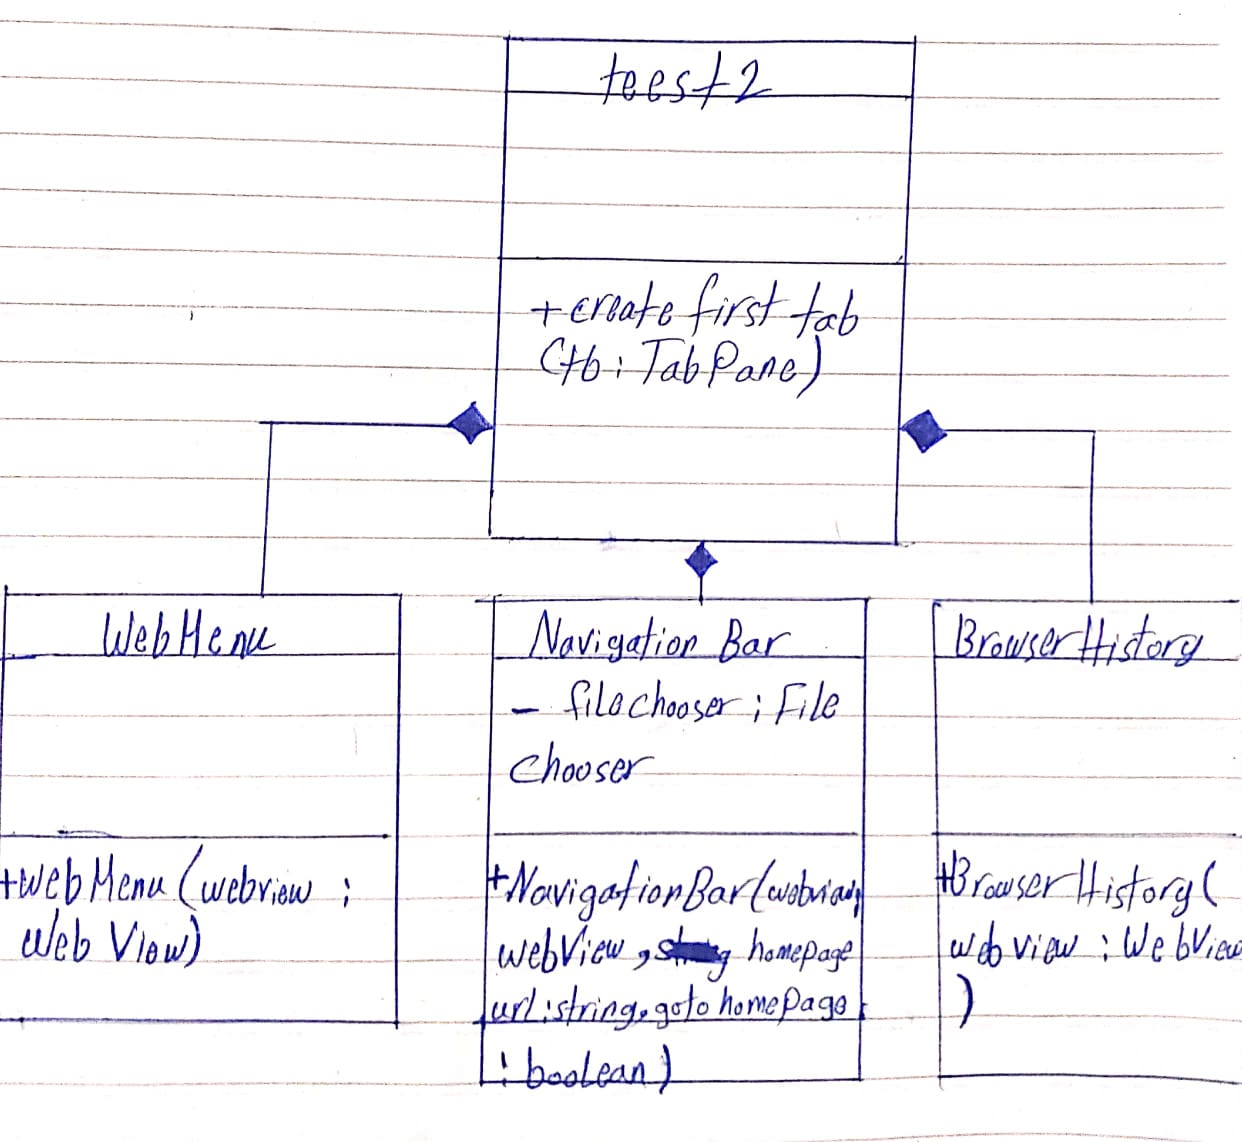 teest2
+create first tab
(tb : Tab Pane)
WebMenu
+WebMenu (webview :
Web View)
Navigation Bar
- filechooser : File
Chooser
+NavigationBar (webview:
webView , homepage
url : string, goto homePage
: boolean)
BrowserHistory
+BrowserHistory(
webview : WebView
)